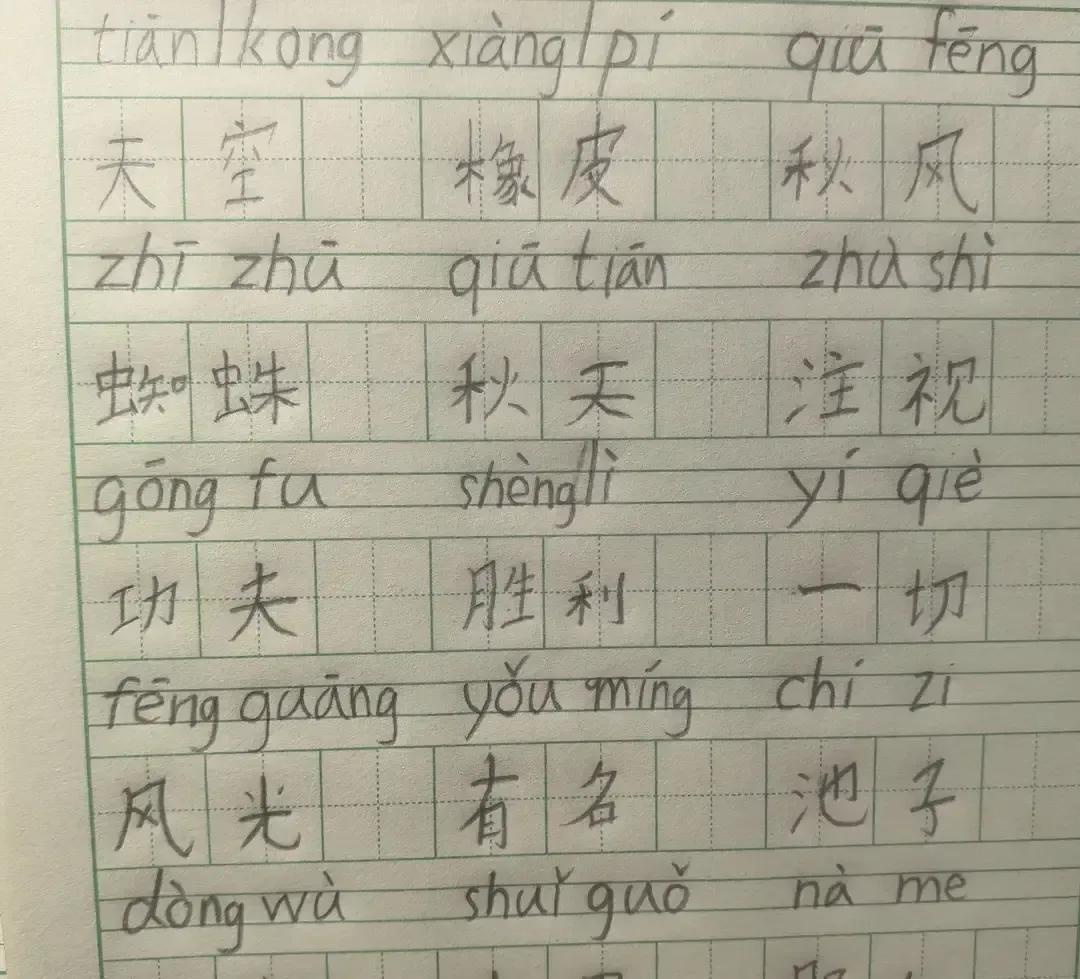 tiān kōng xiàng pí qiū fēng
天空 橡皮 秋风
zhī zhū qiū tiān zhù shì
蜘蛛 秋天 注视
gōng fu shèng lì yí qiè
功夫 胜利 一切
fēng guāng yǒu míng chí zi
风光 有名 池子
dòng wù shuǐ guǒ nà me